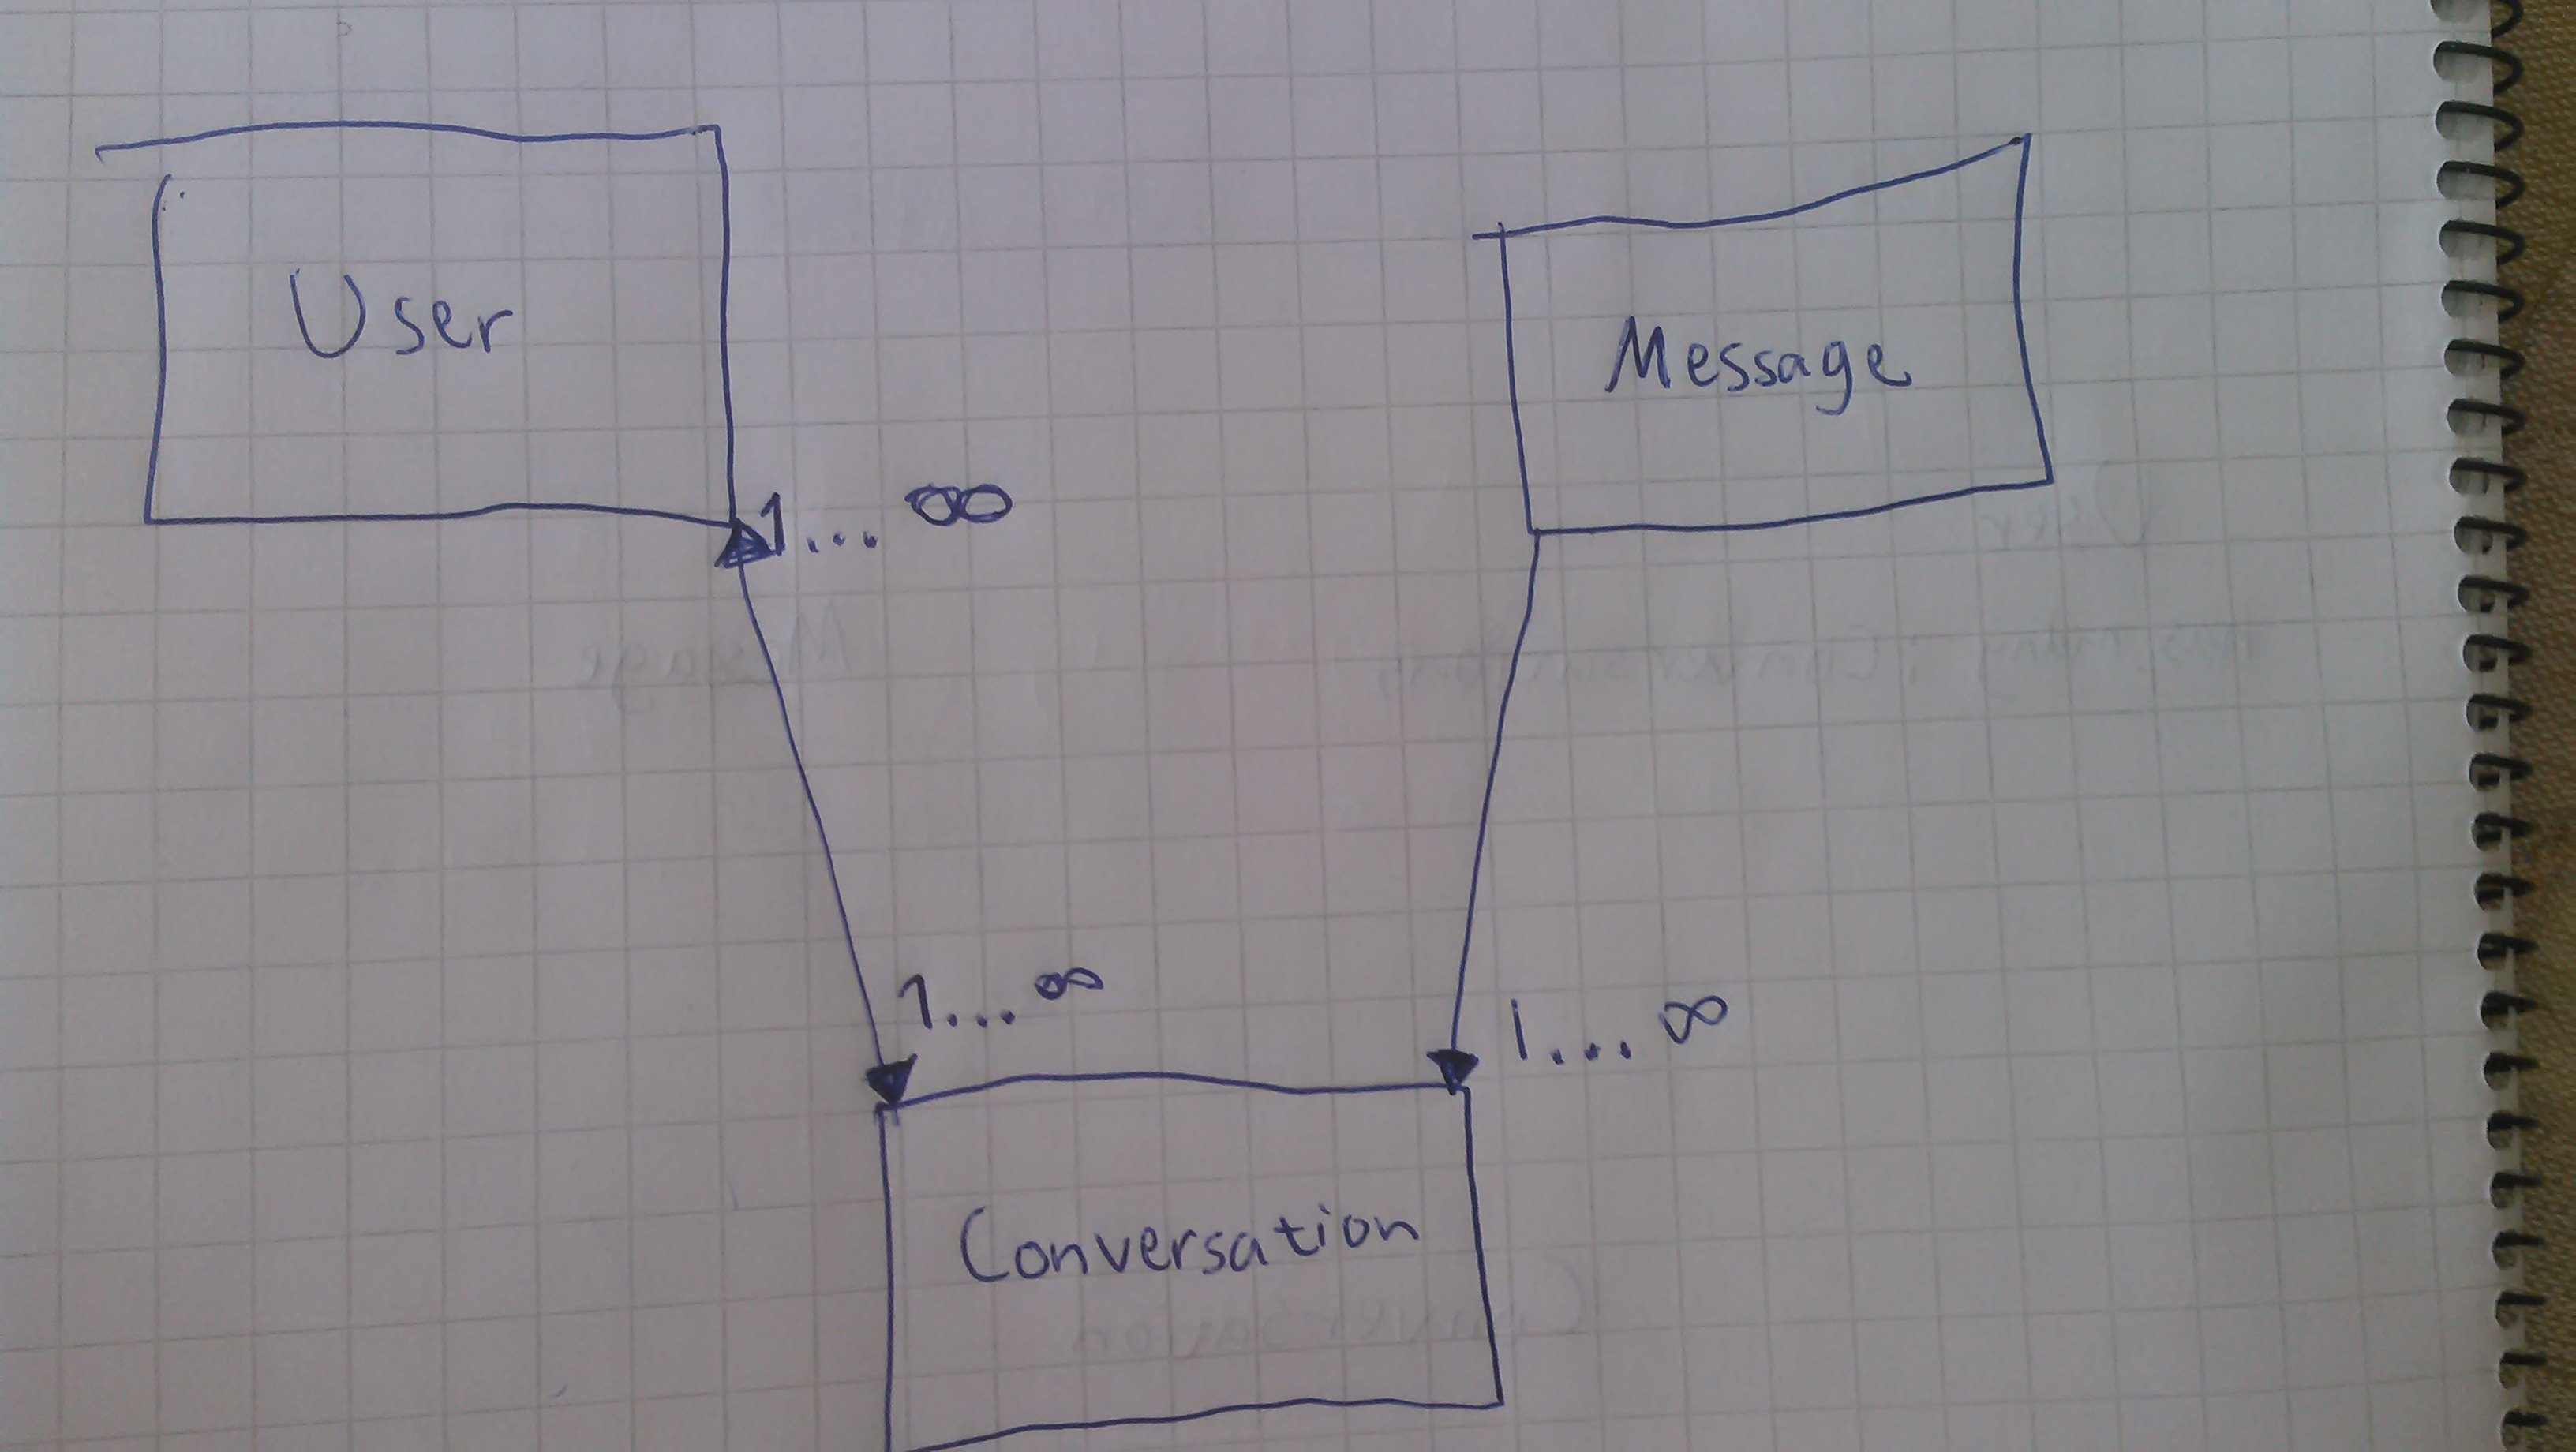 User
Message
1... ∞
1... ∞
1... ∞
Conversation